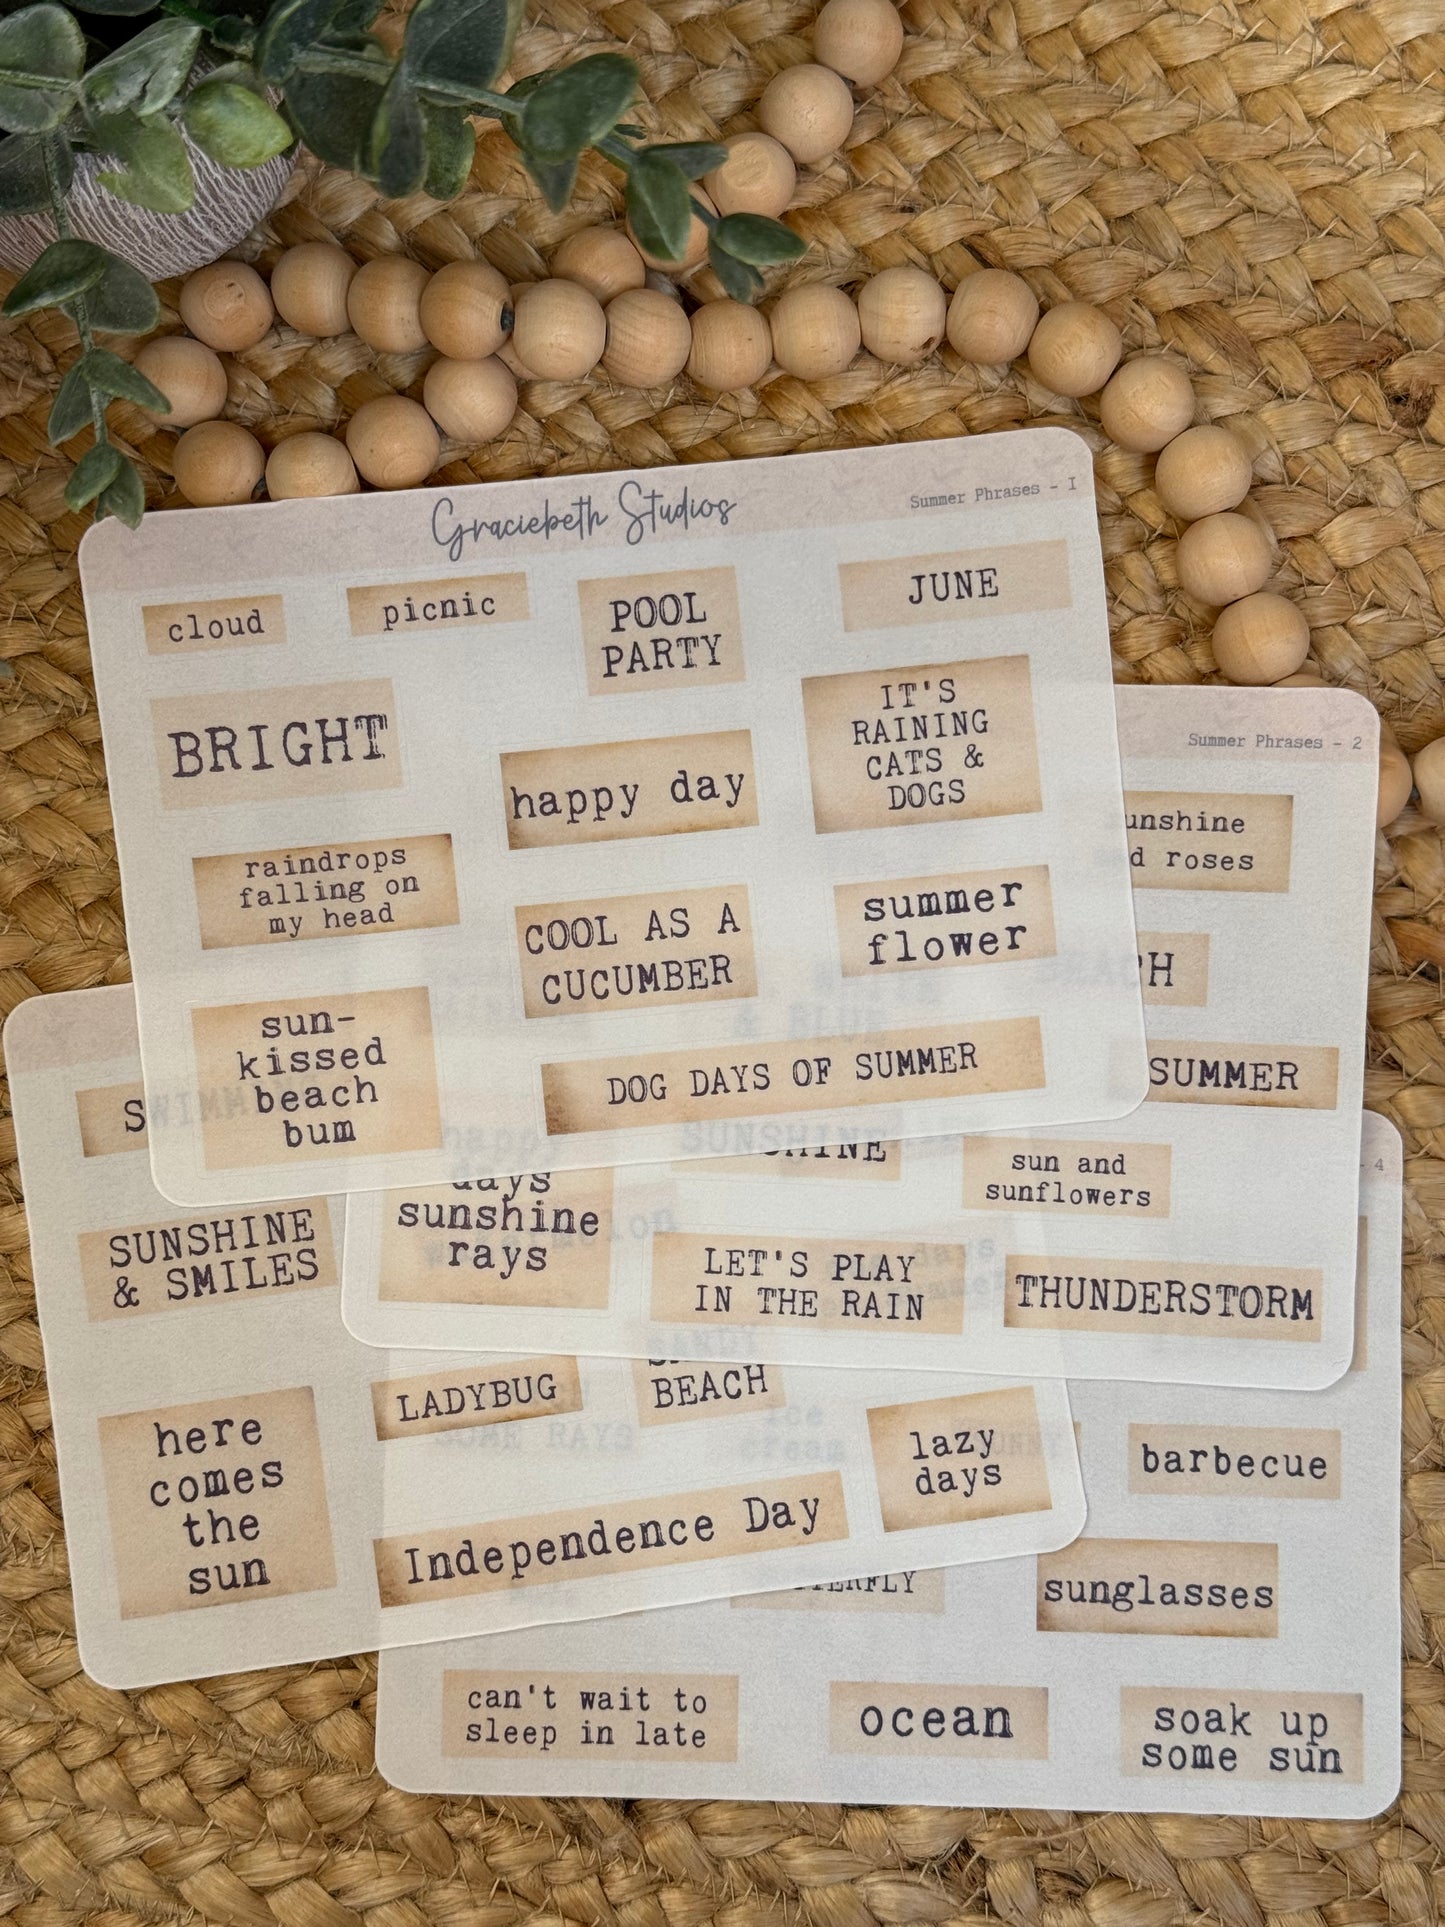 Graciebeth Studios
Summer Phrases - 1
cloud
picnic
POOL
PARTY
JUNE
BRIGHT
happy day
IT'S
RAINING
CATS &
DOGS
raindrops
falling on
my head
COOL AS A
CUCUMBER
summer
flower
sun-
kissed
beach
bum
DOG DAYS OF SUMMER
Summer Phrases - 2
unshine
d roses
SUMMER
SUNSHINE
sun and
sunflowers
happy
days
sunshine
rays
LET'S PLAY
IN THE RAIN
THUNDERSTORM
SUNSHINE
& SMILES
here
comes
the
sun
LADYBUG
SANDY
BEACH
lazy
days
Independence Day
- 4
barbecue
sunglasses
can't wait to
sleep in late
ocean
soak up
some sun